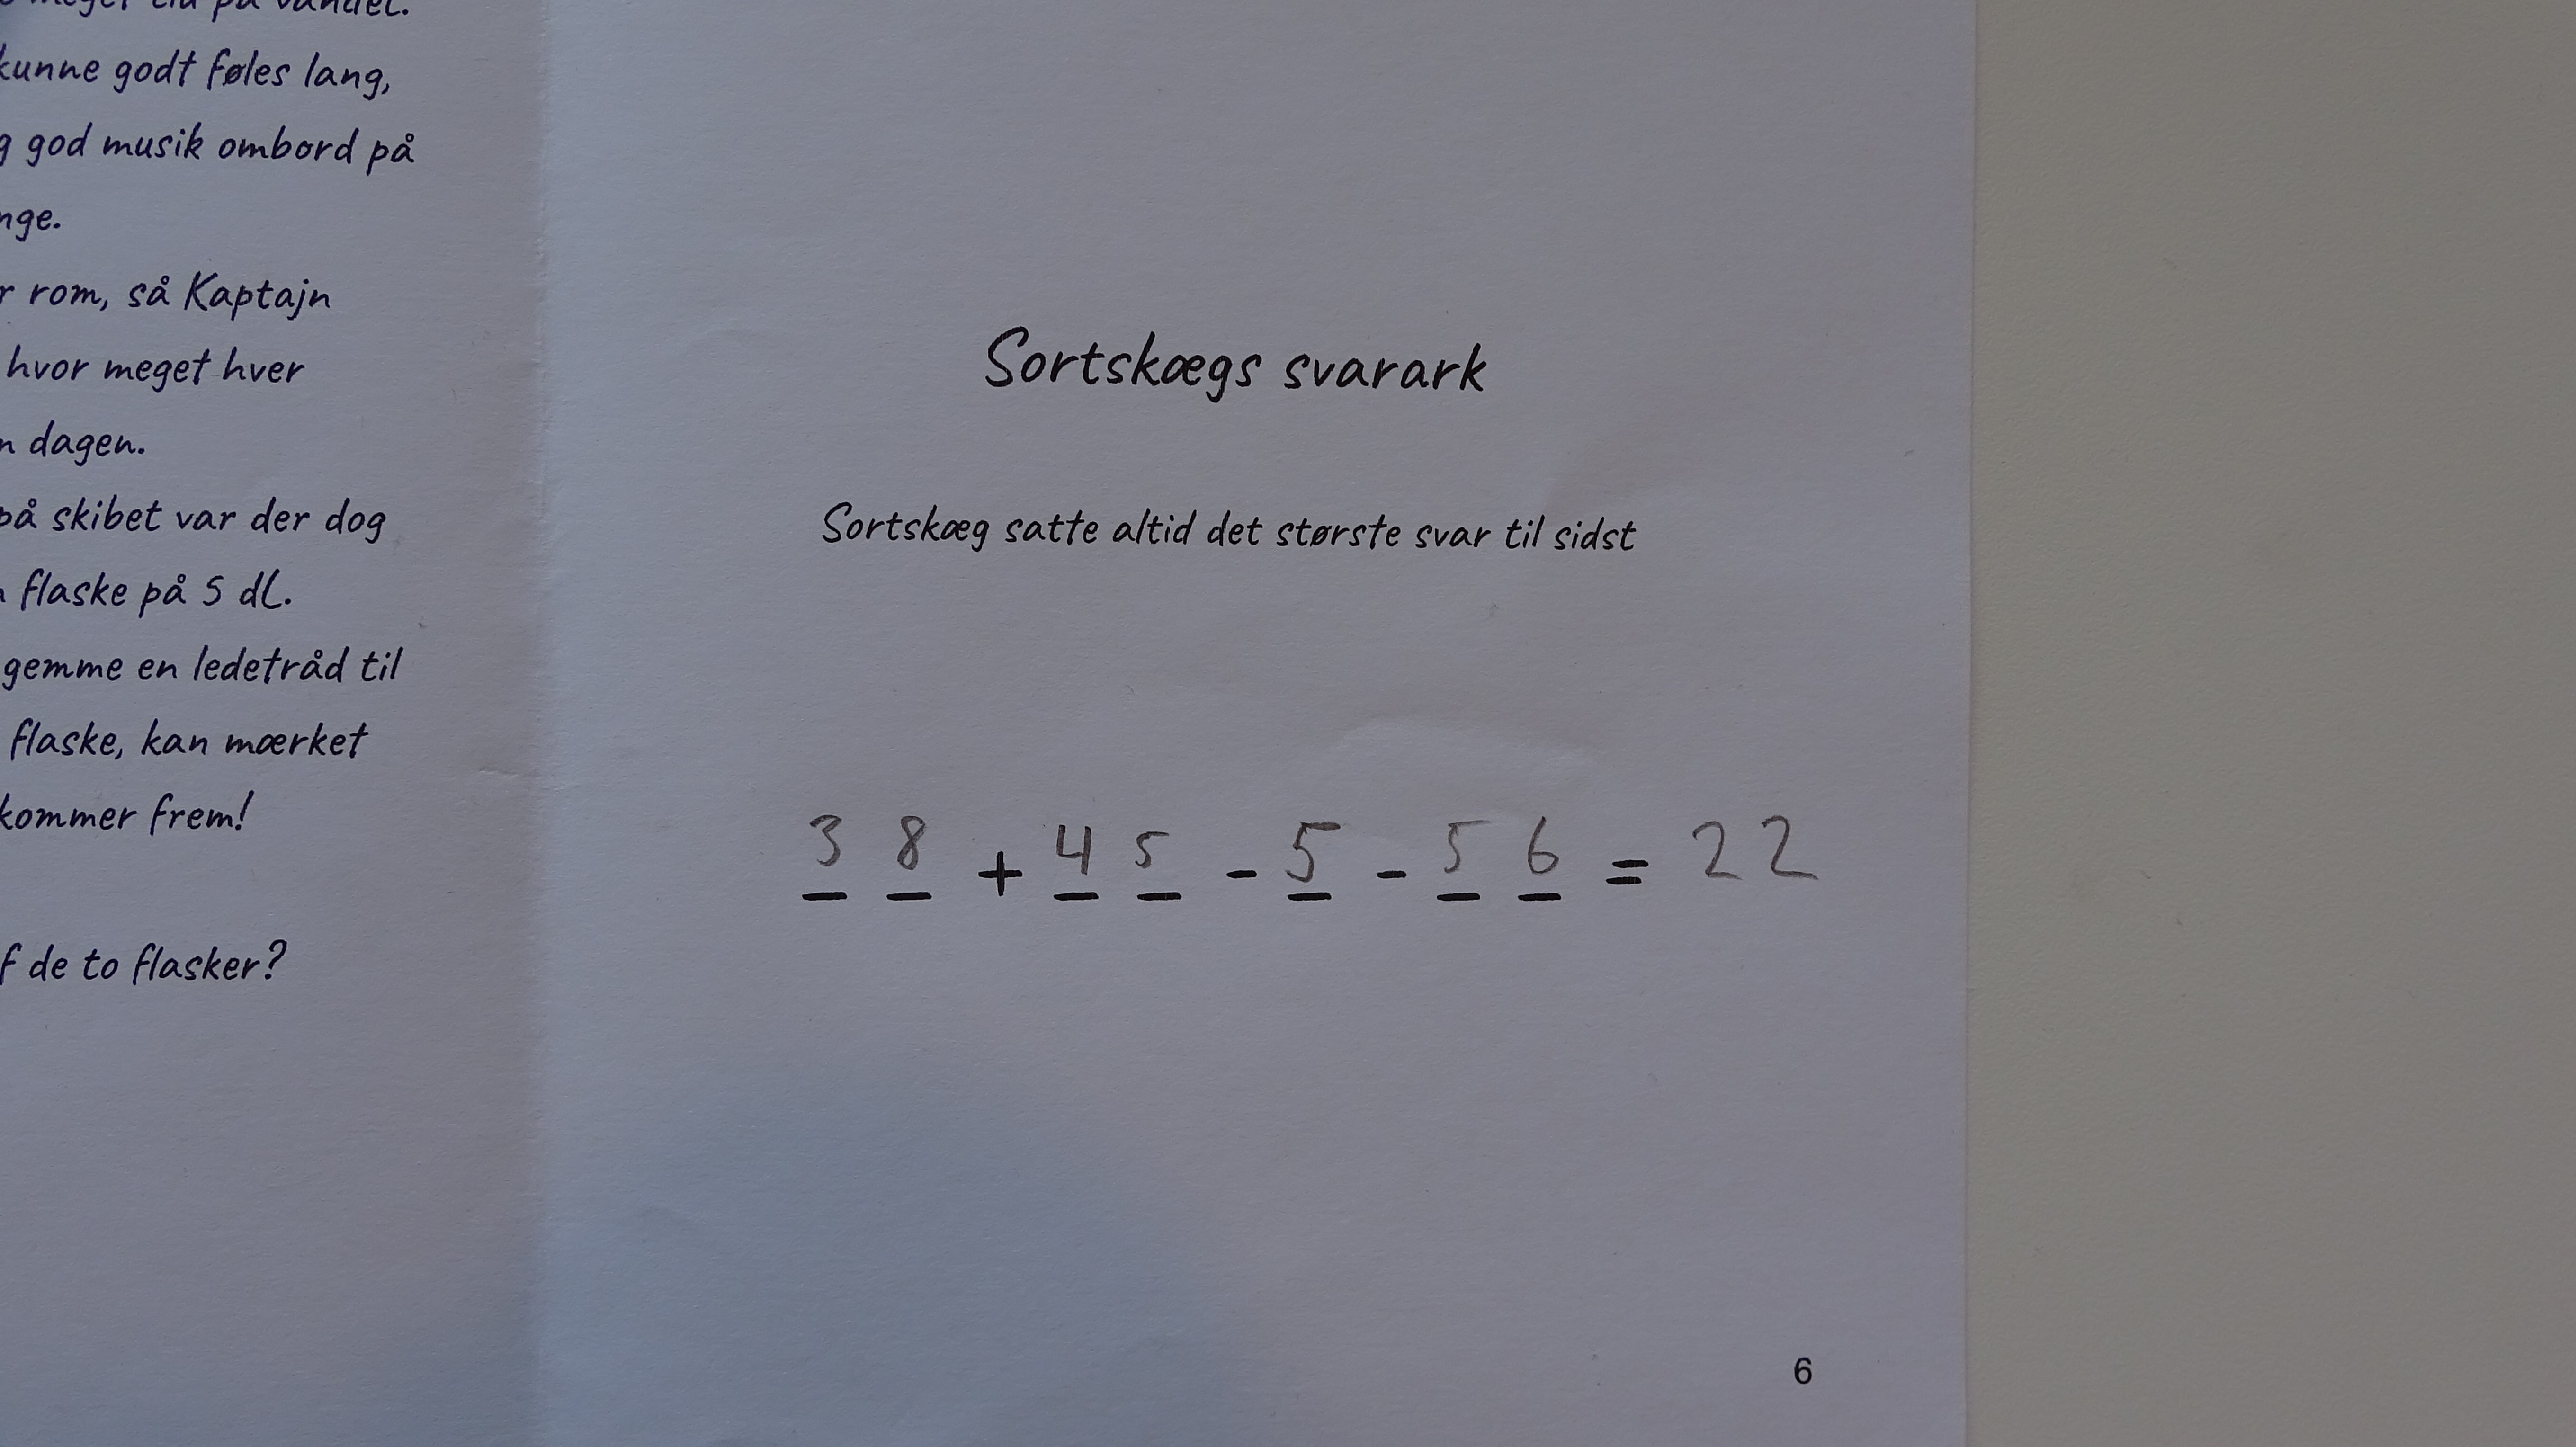 meget tid på vandet.
kunne godt føles lang,
god musik ombord på
nge.
r rom, så Kaptajn
hvor meget hver
n dagen.
på skibet var der dog
flaske på 5 dl.
gemme en ledetråd til
flaske, kan mærket
kommer frem!
f de to flasker?
Sortskægs svarark
Sortskæg satte altid det største svar til sidst
3 8 + 4 5 - 5 - 5 6 = 22
6